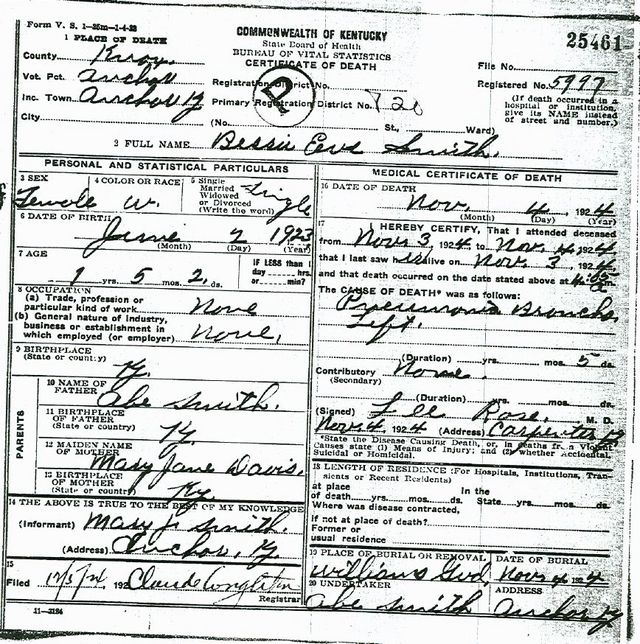 Form V. S. 1-35m-1-4-22
COMMONWEALTH OF KENTUCKY
State Board of Health
BUREAU OF VITAL STATISTICS
CERTIFICATE OF DEATH
25461
1 PLACE OF DEATH
County Knox
Vot. Pct. Anchor
Inc. Town Anchor Ky
City
Registration District No.
Primary Registration District No.
(No. St., Ward)
File No.
Registered No. 5997
(If death occurred in a
hospital or institution,
give its NAME instead
of street and number.)
D
2 FULL NAME Bessie Eve Smith.
PERSONAL AND STATISTICAL PARTICULARS
3 SEX
Female
4 COLOR OR RACE
W.
5 Single
Married
Widowed
or Divorced
(Write the word)
Single
6 DATE OF BIRTH
June 2 1923
(Month) (Day) (Year)
7 AGE
1 yrs. 5 mos. 2 ds.
IF LESS than 1
day hrs.
or min.?
8 OCCUPATION
(a) Trade, profession or
particular kind of work None
(b) General nature of industry,
business or establishment in
which employed (or employer) None,
9 BIRTHPLACE
(State or country) Ky.
PARENTS
10 NAME OF
FATHER Abe Smith.
11 BIRTHPLACE
OF FATHER
(State or country) Ky
12 MAIDEN NAME
OF MOTHER Mary Jane Davis.
13 BIRTHPLACE
OF MOTHER
(State or country) Ky.
14 THE ABOVE IS TRUE TO THE BEST OF MY KNOWLEDGE
(Informant) Mary J. Smith.
(Address) Anchor, Ky
15
Filed 12/5/24, 192 Claude Congleton
Registrar
11-3184
MEDICAL CERTIFICATE OF DEATH
16 DATE OF DEATH
Nov. 4, 1924
(Month) (Day) (Year)
I HEREBY CERTIFY, That I attended deceased
from Nov 3 1924 to Nov. 4, 1924
that I last saw alive on Nov. 3, 1924
and that death occurred on the date stated above at
The CAUSE OF DEATH* was as follows:
Pneumonia Broncho
Left.
(Duration) yrs. mos. 5 ds.
Contributory None.
(Secondary)
(Duration) yrs. mos. ds.
(Signed) Lee Rose, M. D.
Nov. 4, 1924 (Address) Carpenter Ky
*State the Disease Causing Death, or, in deaths from Violent
Causes state (1) Means of Injury; and (2) whether Accidental,
Suicidal or Homicidal.
18 LENGTH OF RESIDENCE (For Hospitals, Institutions, Tran-
sients or Recent Residents)
at place In the
of death yrs. mos. ds. State yrs. mos. ds.
Where was disease contracted,
if not at place of death?
Former or
usual residence
19 PLACE OF BURIAL OR REMOVAL
Williams Gvd,
DATE OF BURIAL
Nov 4 1924
20 UNDERTAKER
Abe Smith
ADDRESS
Anchor Ky